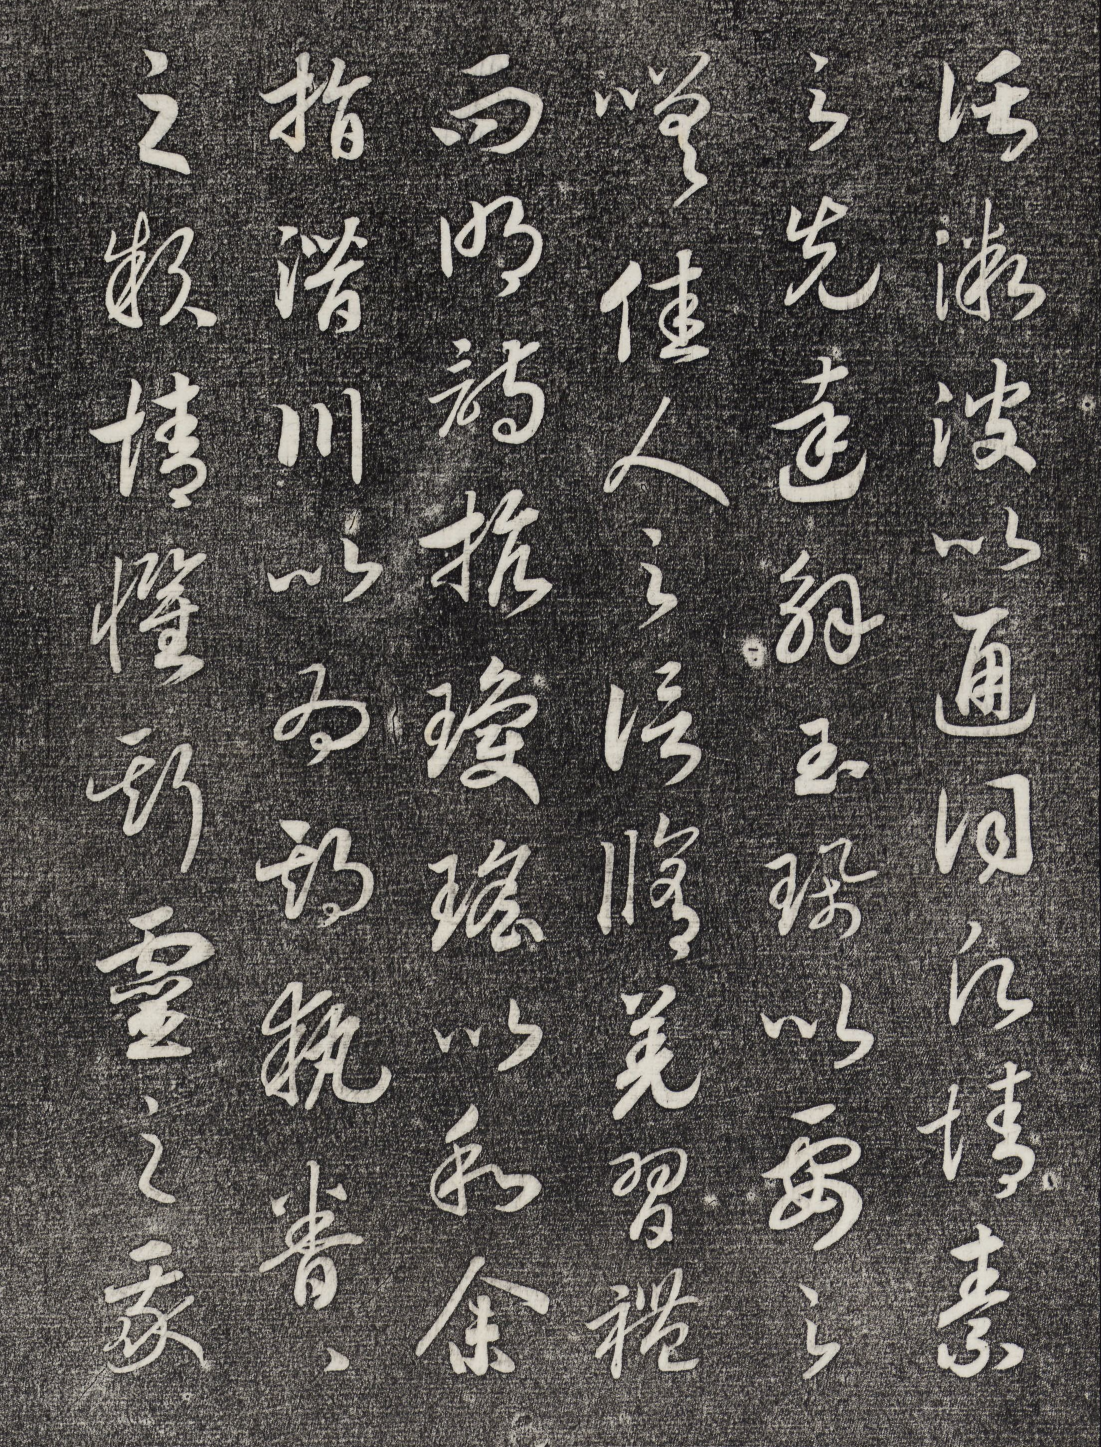 託微波以通詞永情素
之先達解玉珮以要之
嗟佳人之信脩羌習禮
而明詩抗瓊瑤以和余
指潛川以為期執眷眷
之款情懼斯靈之我